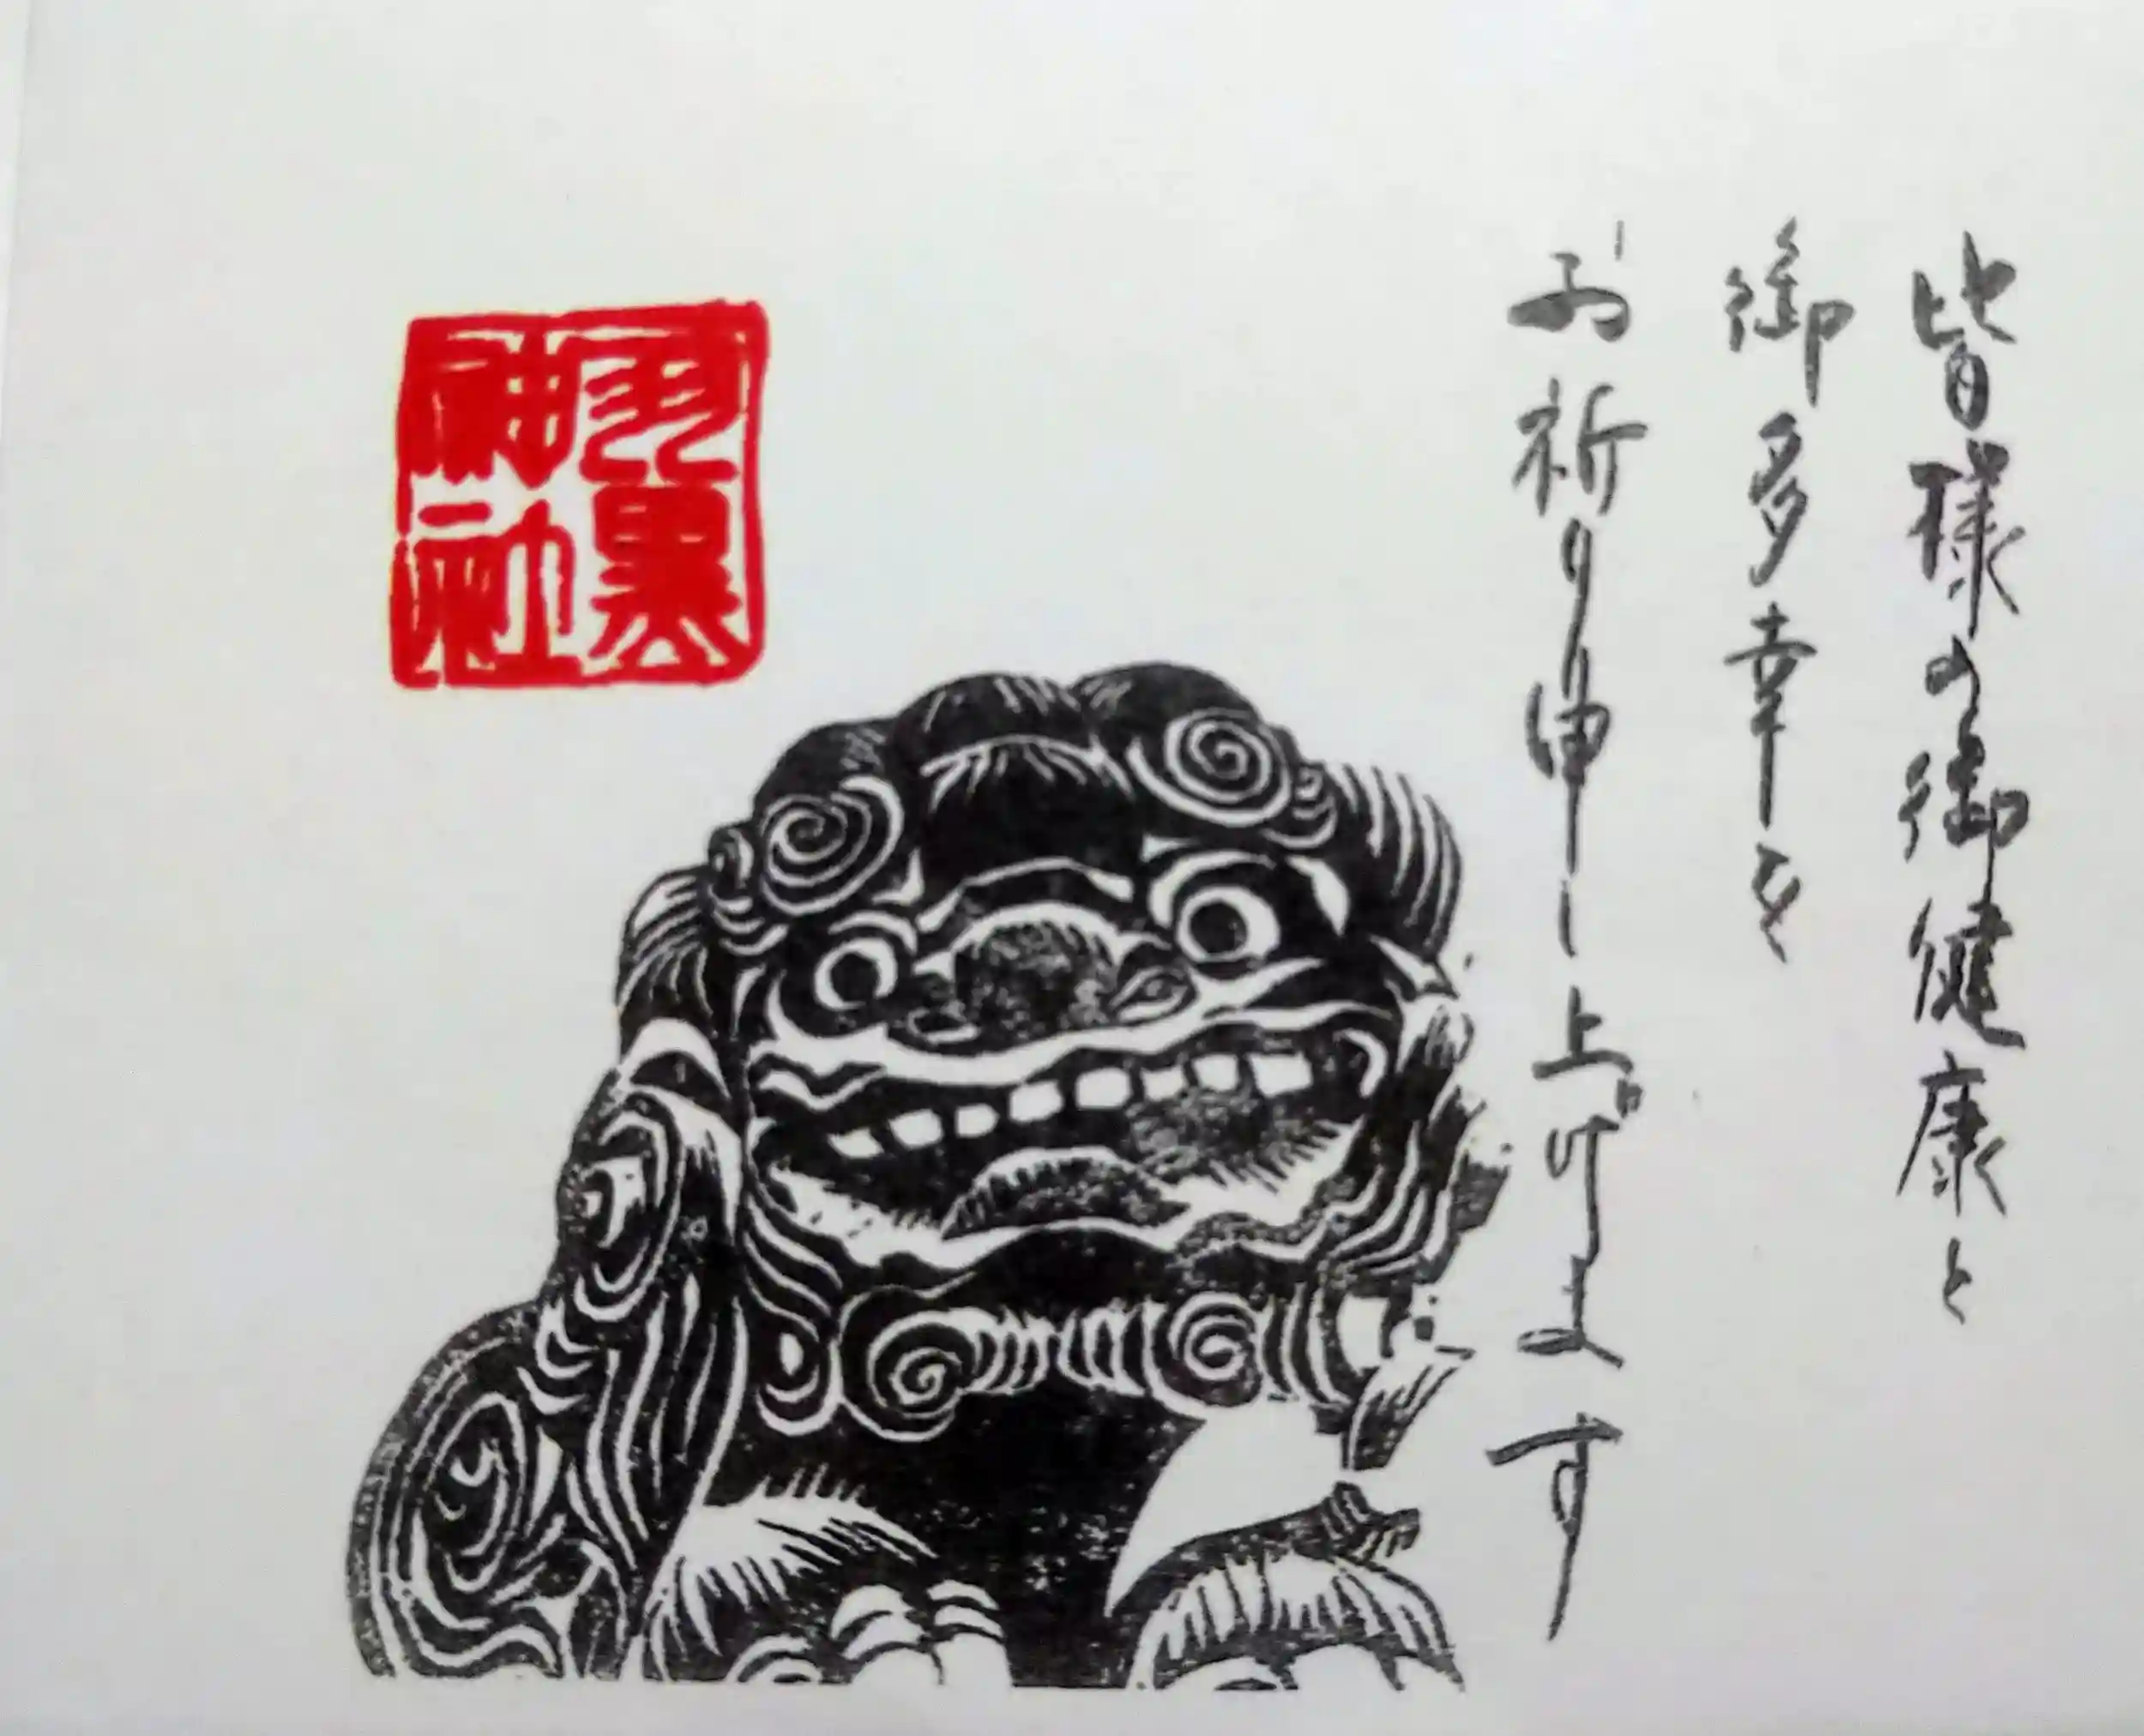 皆様の御健康と
御多幸を
お祈り申し上げます
羽黒
神社